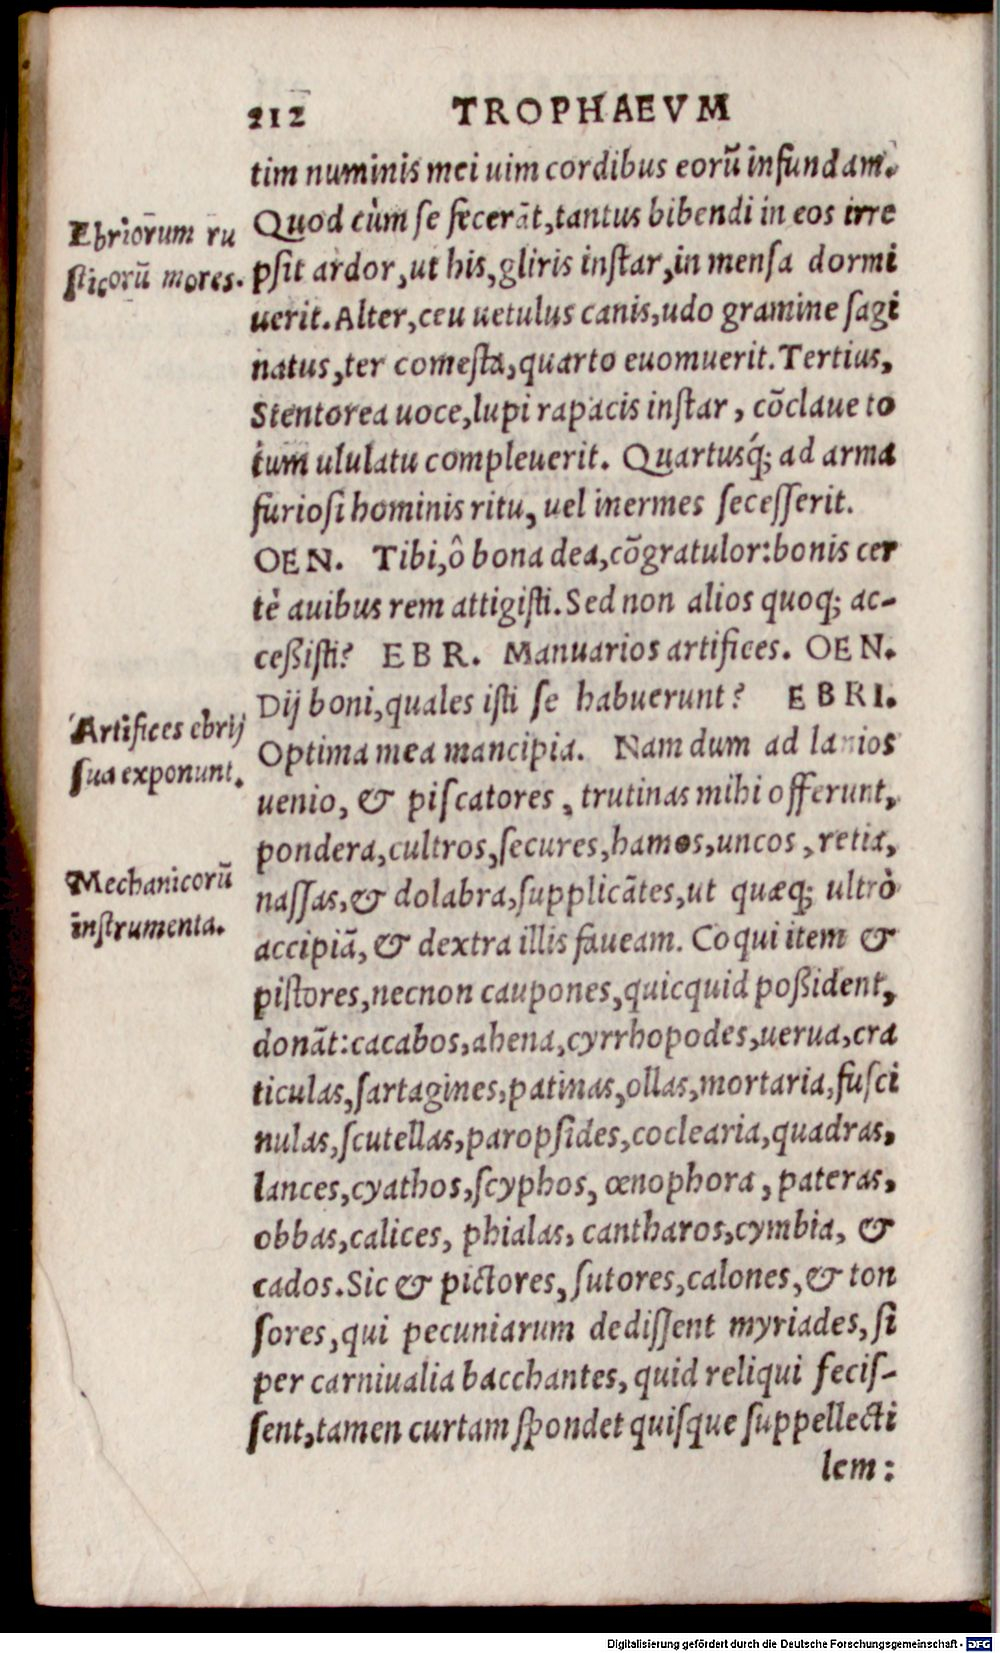 212 TROPHAEVM
tim numinis mei uim cordibus eorũ infundam.
Quod cùm se fecerãt, tantus bibendi in eos irre
psit ardor, ut his, gliris instar, in mensa dormi
uerit. Alter, ceu uetulus canis, udo gramine sagi
natus, ter comesta, quarto euomuerit. Tertius,
Stentorea uoce, lupi rapacis instar, cõclaue to
tum ululatu compleuerit. Quartusq́; ad arma
furiosi hominis ritu, uel inermes secesserit.
OEN. Tibi, ô bona dea, cõgratulor: bonis cer
tè auibus rem attigisti. Sed non alios quoq; ac-
ceßisti? EBR. Manuarios artifices. OEN.
Dij boni, quales isti se habuerunt? EBRI.
Optima mea mancipia. Nam dum ad lanios
uenio, & piscatores, trutinas mihi offerunt,
pondera, cultros, secures, hamos, uncos, retia,
nassas, & dolabra, supplicãtes, ut quæq; ultrò
accipiã, & dextra illis faueam. Coqui item &
pistores, necnon caupones, quicquid poßident,
donãt: cacabos, ahena, cyrrhopodes, uerua, cra
ticulas, sartagines, patinas, ollas, mortaria, fusci
nulas, scutellas, paropsides, coclearia, quadras,
lances, cyathos, scyphos, œnophora, pateras,
obbas, calices, phialas, cantharos, cymbia, &
cados. Sic & pictores, sutores, calones, & ton
sores, qui pecuniarum dedissent myriades, si
per carniualia bacchantes, quid reliqui fecis-
sent, tamen curtam spondet quisque suppellecti
lem:
Ebriorum ru
sticorũ mores.
Artifices ebrij
sua exponunt.
Mechanicorũ
instrumenta.
Digitalisierung gefördert durch die Deutsche Forschungsgemeinschaft - DFG